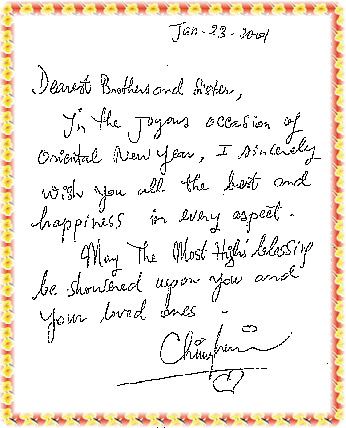 Jan - 23 - 2001
Dearest Brothers and Sister,
In the Joyous occasion of
Oriental New Year, I sincerely
wish you all the best and
happiness in every aspect.
May The Most High's blessing
be showered upon you and
your loved ones -